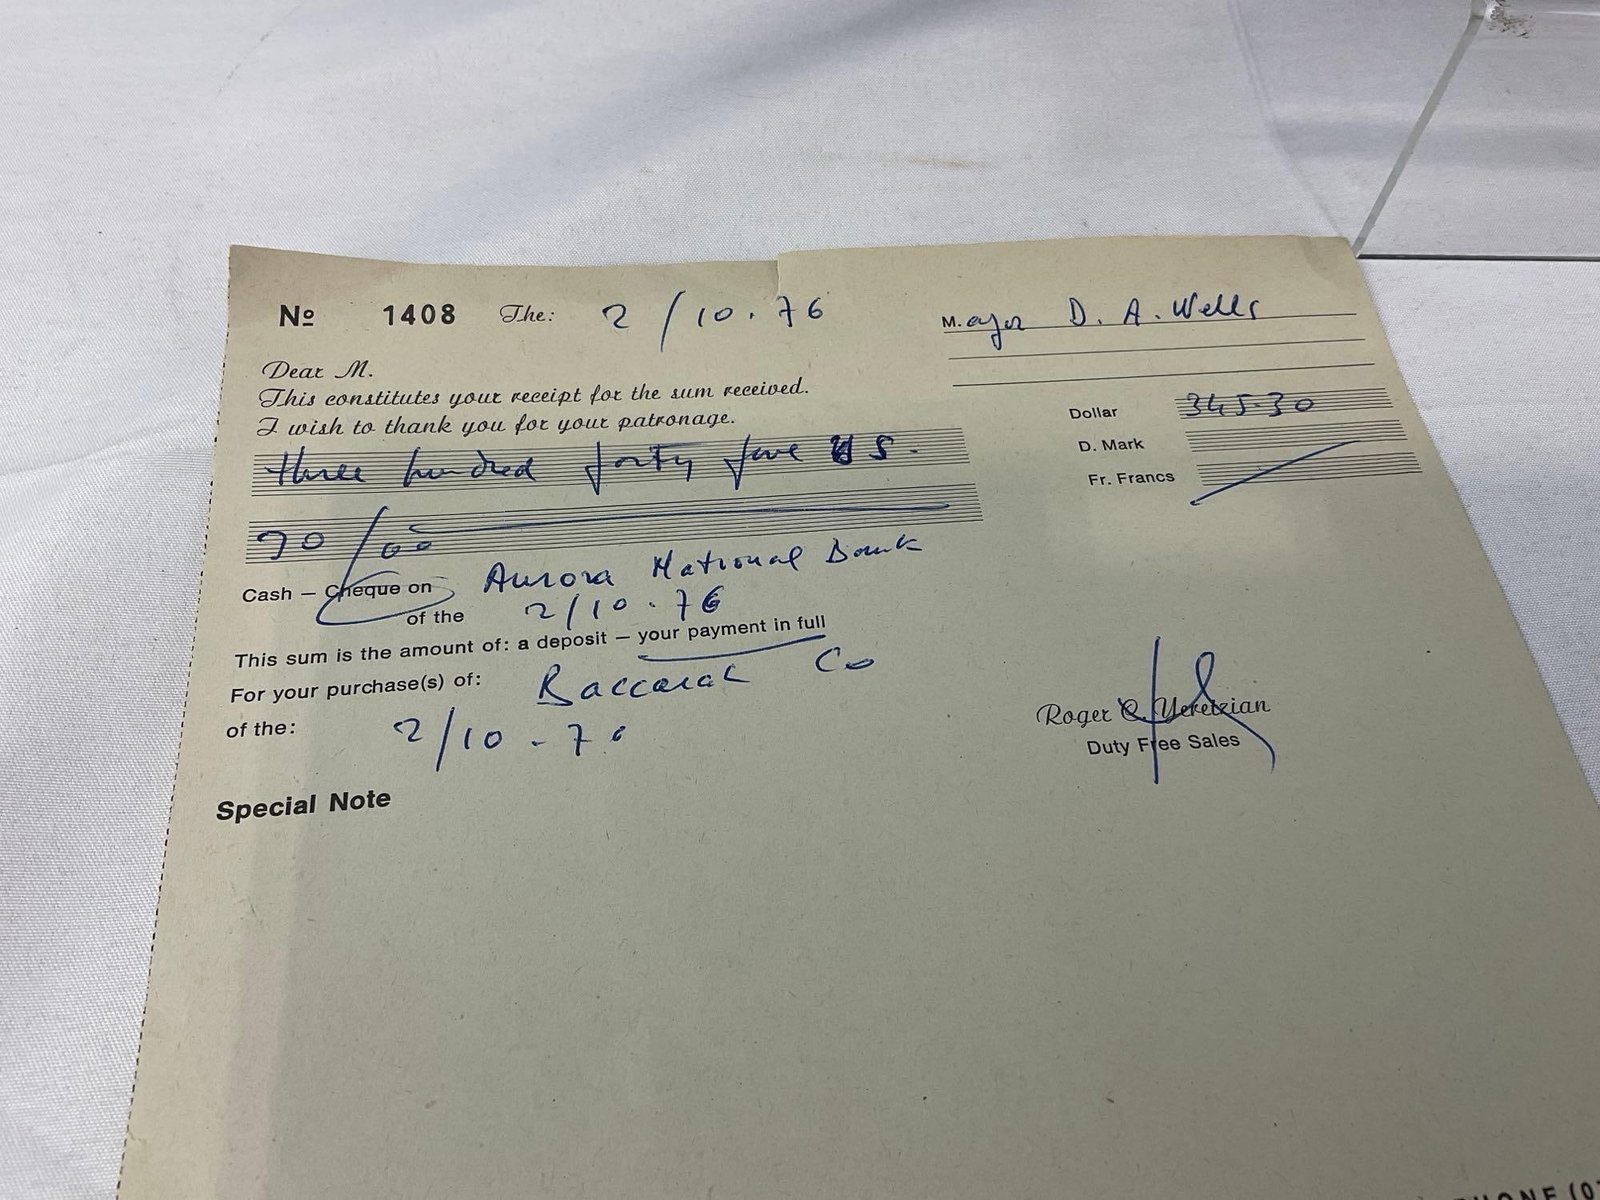 Nº 1408 The: 2/10.76
Major D. A. Wells
Dear M.
This constitutes your receipt for the sum received.
I wish to thank you for your patronage.
Dollar 345.30
D. Mark
Fr. Francs
three hundred forty five US.
30/00
Cash – Cheque on Aurora National Bank
of the 2/10.76
This sum is the amount of: a deposit – your payment in full
For your purchase(s) of: Baccarat Co
of the: 2/10-76
Roger C. Yeretzian
Duty Free Sales
Special Note